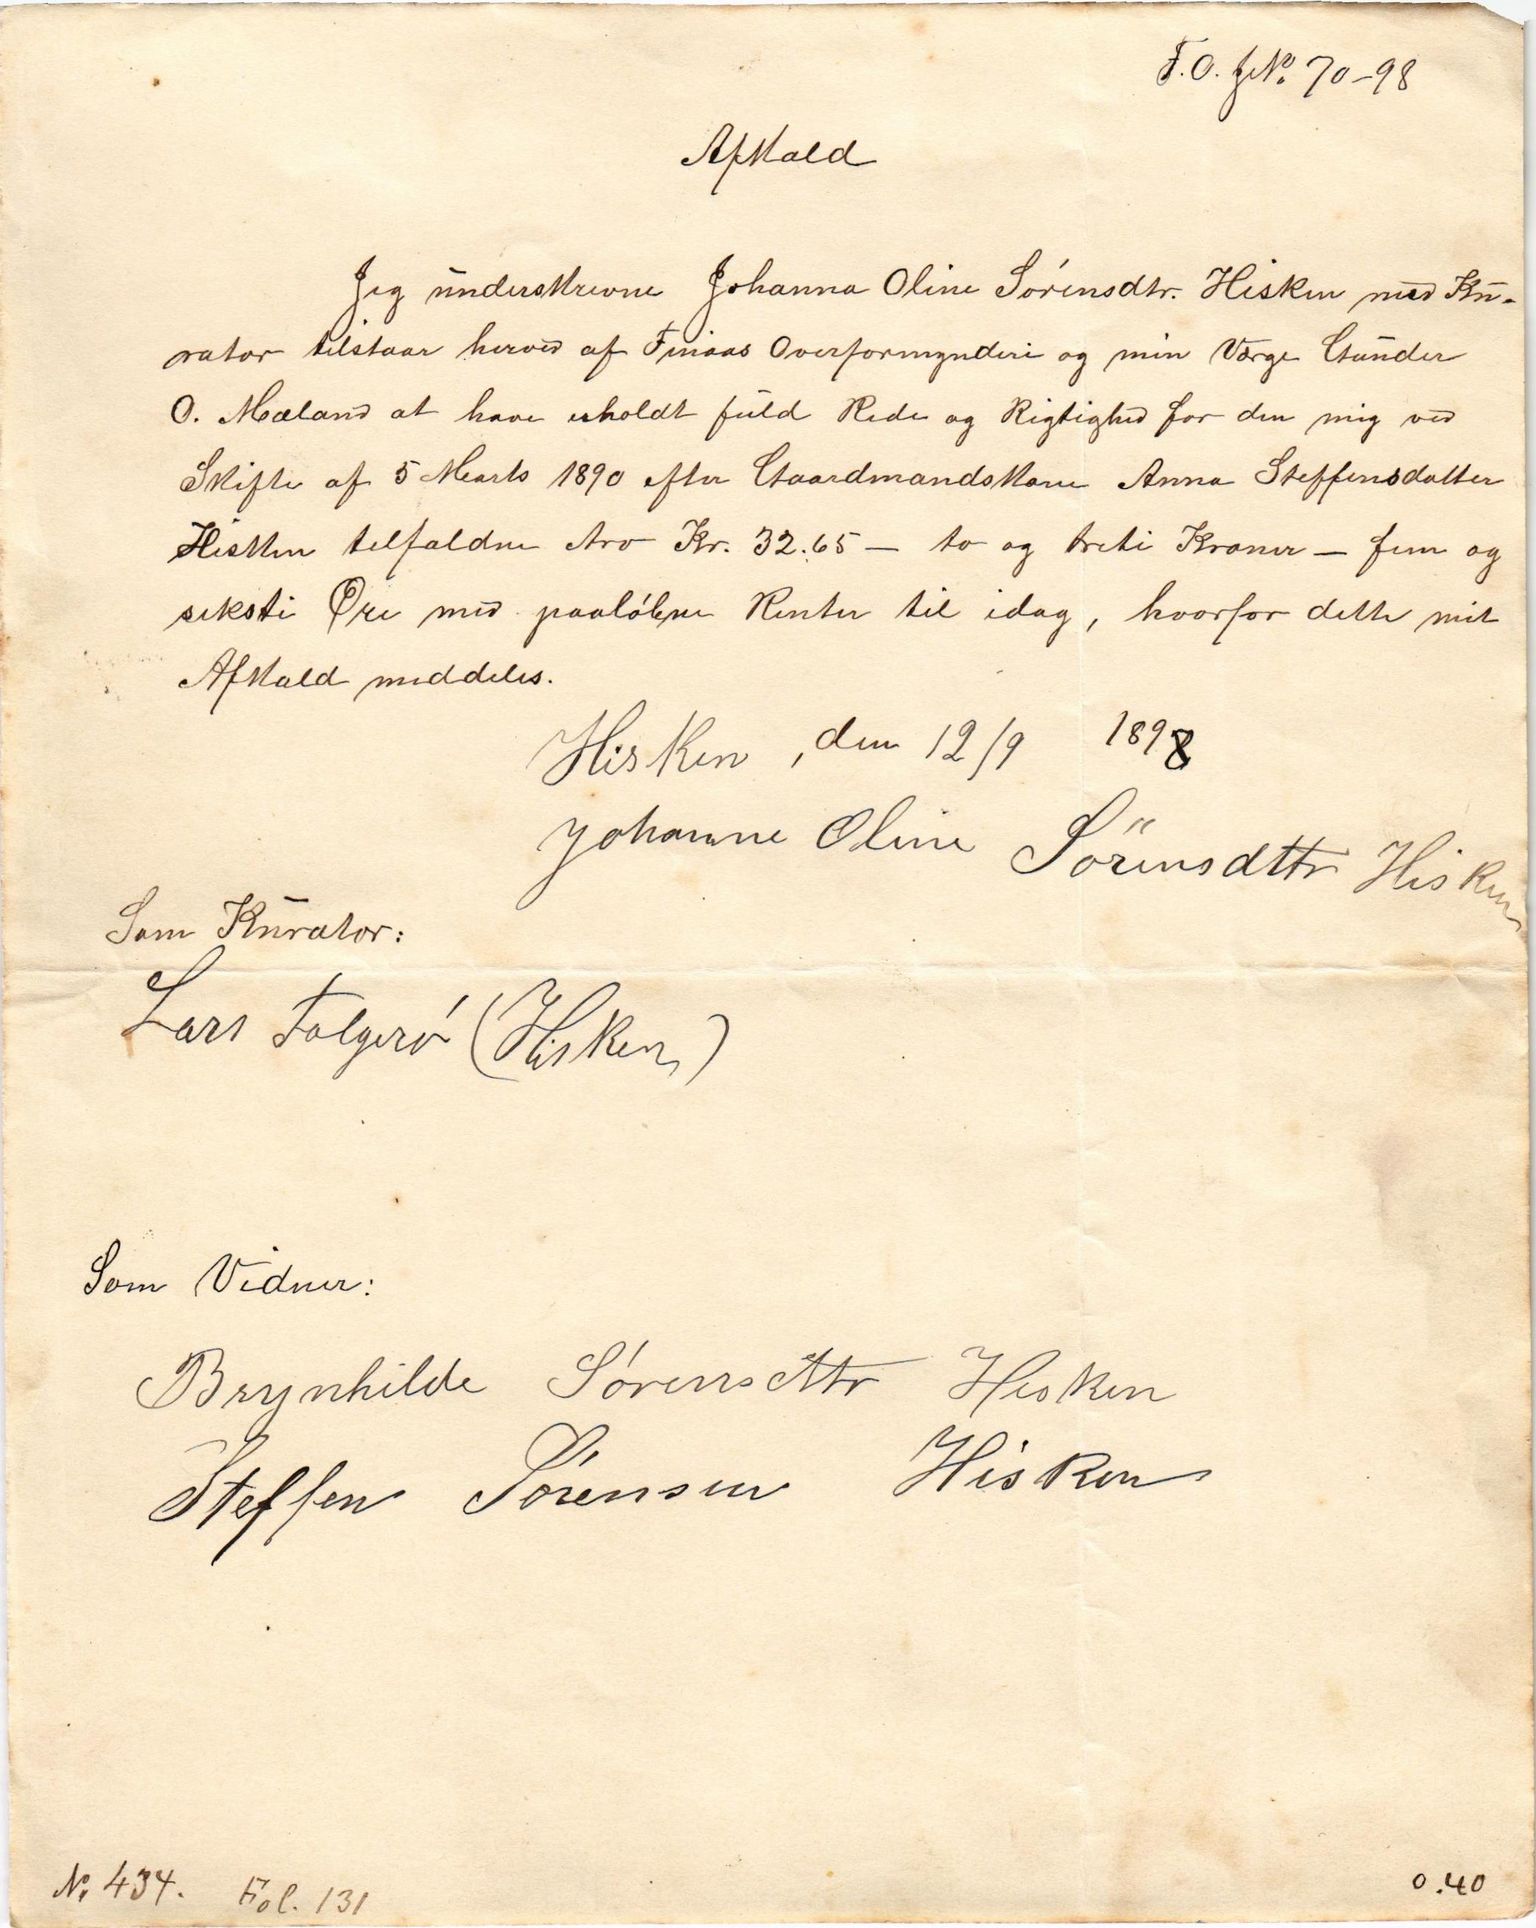 F.O. J.No. 70-98
Afkald
Jeg underskrevne Johanna Oline Sørensdtr. Hisken med Ku-
rator tilstaar herved af Finaas Overformynderi og min Værge Gunder
O. Mæland at have erholdt fuld Rede og Rigtighed for den mig ved
Skifte af 5 Marts 1890 efter Gaardmandskone Anna Steffensdatter
Hisken tilfaldne Arv Kr. 32.65 — to og treti Kroner — fem og
seksti Øre med paaløbne Renter til idag, hvorfor dette mit
Afkald meddeles.
Hisken, den 12/9 1898
Johanne Oline Sörensdttr Hisken
Som Kurator:
Lars Folgerø (Hisken)
Som Vidner:
Brynhilde Sørensdttr Hisken
Steffen Sørensen Hisken
No. 434. Fol. 131
0.40